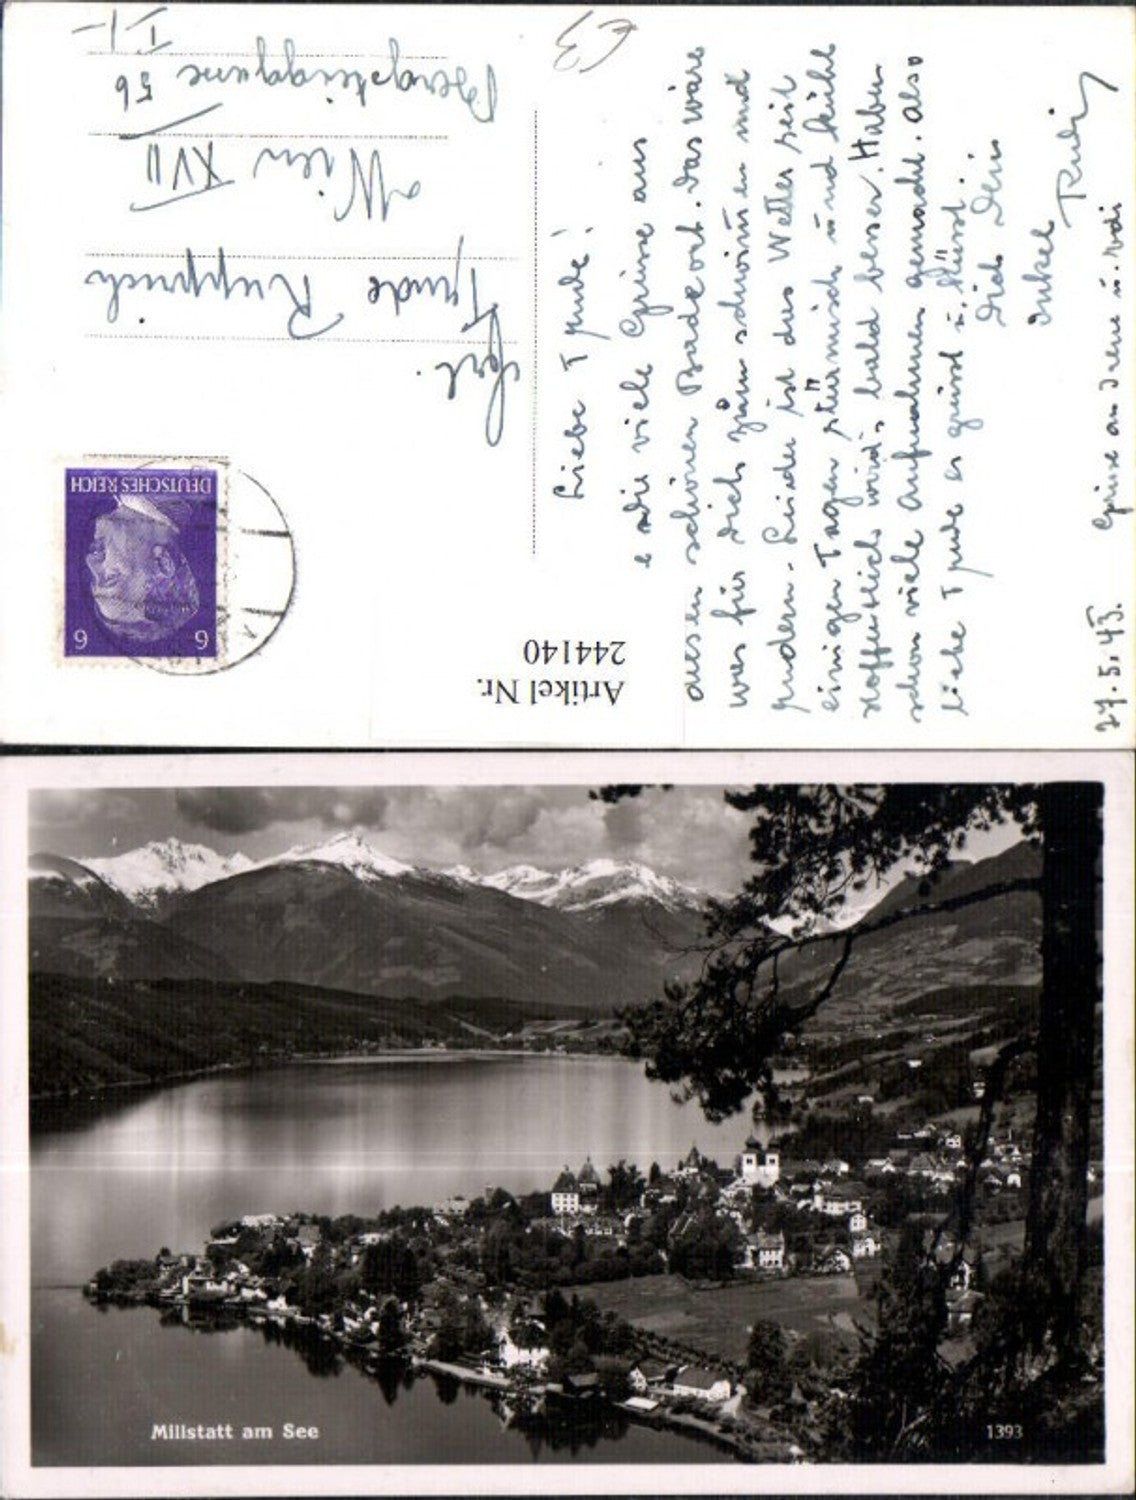 Liebe Trude!
Die viele Grüsse aus
diesen schönen Badeort. Das wäre
was für Dich zum schwimmen und
rudern. Leider ist das Wetter seit
einigen Tagen stürmisch und kühl
Hoffentlich wird's bald besser. Haben
schon viele Aufnahmen gemacht. Also
liebe Trude es grüsst u. küsst
Dich Dein
Onkel
Rudi
27.5.43. Grüsse an u. Rudi
€3
Frl.
Trude Rupprich
Wien XVII
Bergsteiggasse 56
I/-
DEUTSCHES REICH
6 6
Artikel Nr.
244140
Millstatt am See
1393